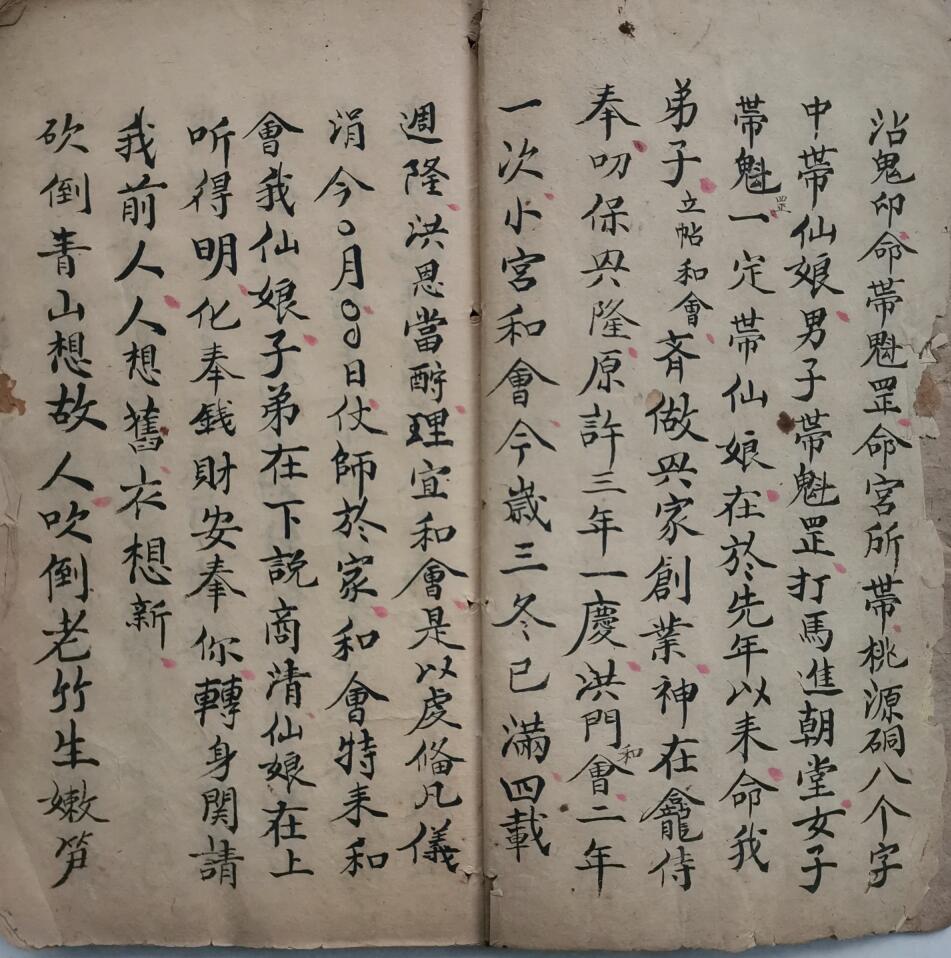 沾鬼印命帶魁罡命宮所帶桃源硐八个字
中帶仙娘男子帶魁罡打馬進朝堂女子
帶魁罡一定帶仙娘在於先年以来命我
弟子立帖和會斉做與家創業神在龕侍
奉叨保興隆原許三年一慶洪門和會二年
一次小宮和會今歲三冬已滿四載
週隆洪恩當酧理宜和會是以虔俻凡儀
涓今〇月〇〇日仗師於家和會特来和
會我仙娘子弟在下説商清仙娘在上
听得明化奉錢財安奉你轉身関請
我前人人想舊衣想新
砍倒青山想故人吹倒老竹生嫩笋